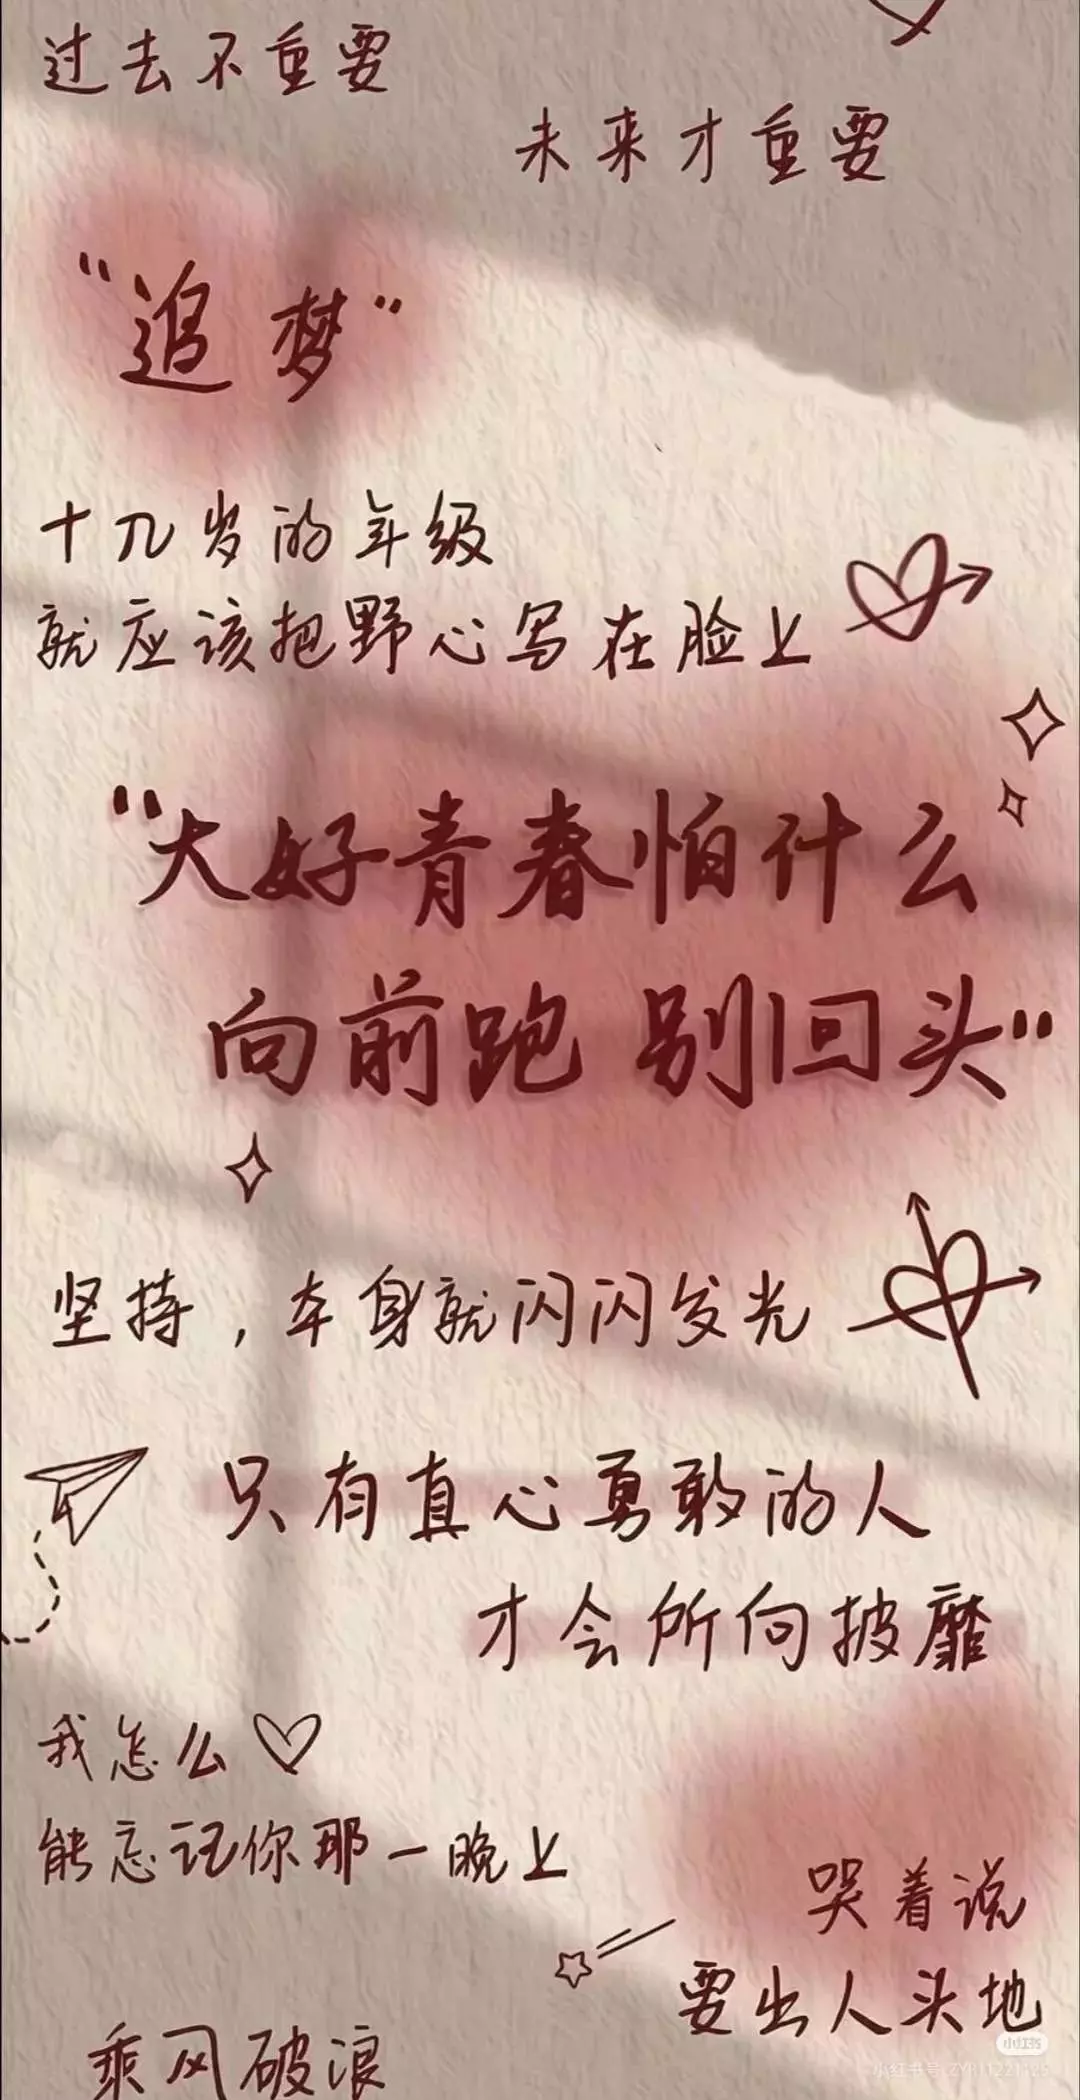 过去不重要
未来才重要
"追梦"
十几岁的年级
就应该把野心写在脸上
"大好青春怕什么
向前跑 别回头"
坚持，本身就闪闪发光
只有真心勇敢的人
才会所向披靡
我怎么
能忘记你那一晚上
哭着说
要出人头地
小红书
乘风破浪